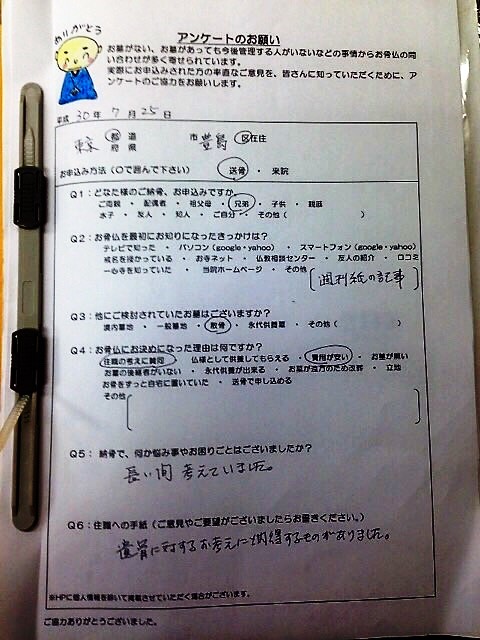 ありがとう
アンケートのお願い
お墓がない、お墓があっても今後管理する人がいないなどの事情からお骨仏の問
い合わせが多く寄せられています。
実際にお申込みされた方の率直なご意見を、皆さんに知っていただくために、ア
ンケートのご協力をお願いします。
平成 30年 7月 25日
東京 都 道 府 県 市 豊島 区在住
お申込み方法（〇で囲んで下さい） 送骨 ・ 来院
Q1：どなた様のご納骨、お申込みですか。
ご両親 ・ 配偶者 ・ 祖父母 ・ 兄弟 ・ 子供 ・ 親戚
水子 ・ 友人 ・ 知人 ・ ご自分 ・ その他（ ）
Q2：お骨仏を最初にお知りになったきっかけは？
テレビで知った ・ パソコン（google・yahoo） ・ スマートフォン（google・yahoo）
戒名を授かっている ・ お寺ネット ・ 仏教相談センター ・ 友人の紹介 ・ 口コミ
一心寺を知っていた ・ 当院ホームページ ・ その他 〔週刊紙の記事〕
Q3：他にご検討されていたお墓はございますか？
境内墓地 ・ 一般墓地 ・ 散骨 ・ 永代供養墓 ・ その他（ ）
Q4：お骨仏にお決めになった理由は何ですか？
住職の考えに賛同 ・ 仏様として供養してもらえる ・ 費用が安い ・ お墓が無い
お墓の後継者がいない ・ 永代供養が出来る ・ お墓が遠方のため改葬 ・ 立地
お骨をずっと自宅に置いていた ・ 送骨で申し込める
その他
Q5： 納骨で、何か悩み事やお困りごとはございましたか？
長い間 考えていました。
Q6：住職への手紙（ご意見やご要望がございましたらお書きください。）
遺骨に対するお考えに納得するものがありました。
※HPに個人情報を除いて掲載させていただく場合がございます。
ご協力ありがとうございました。